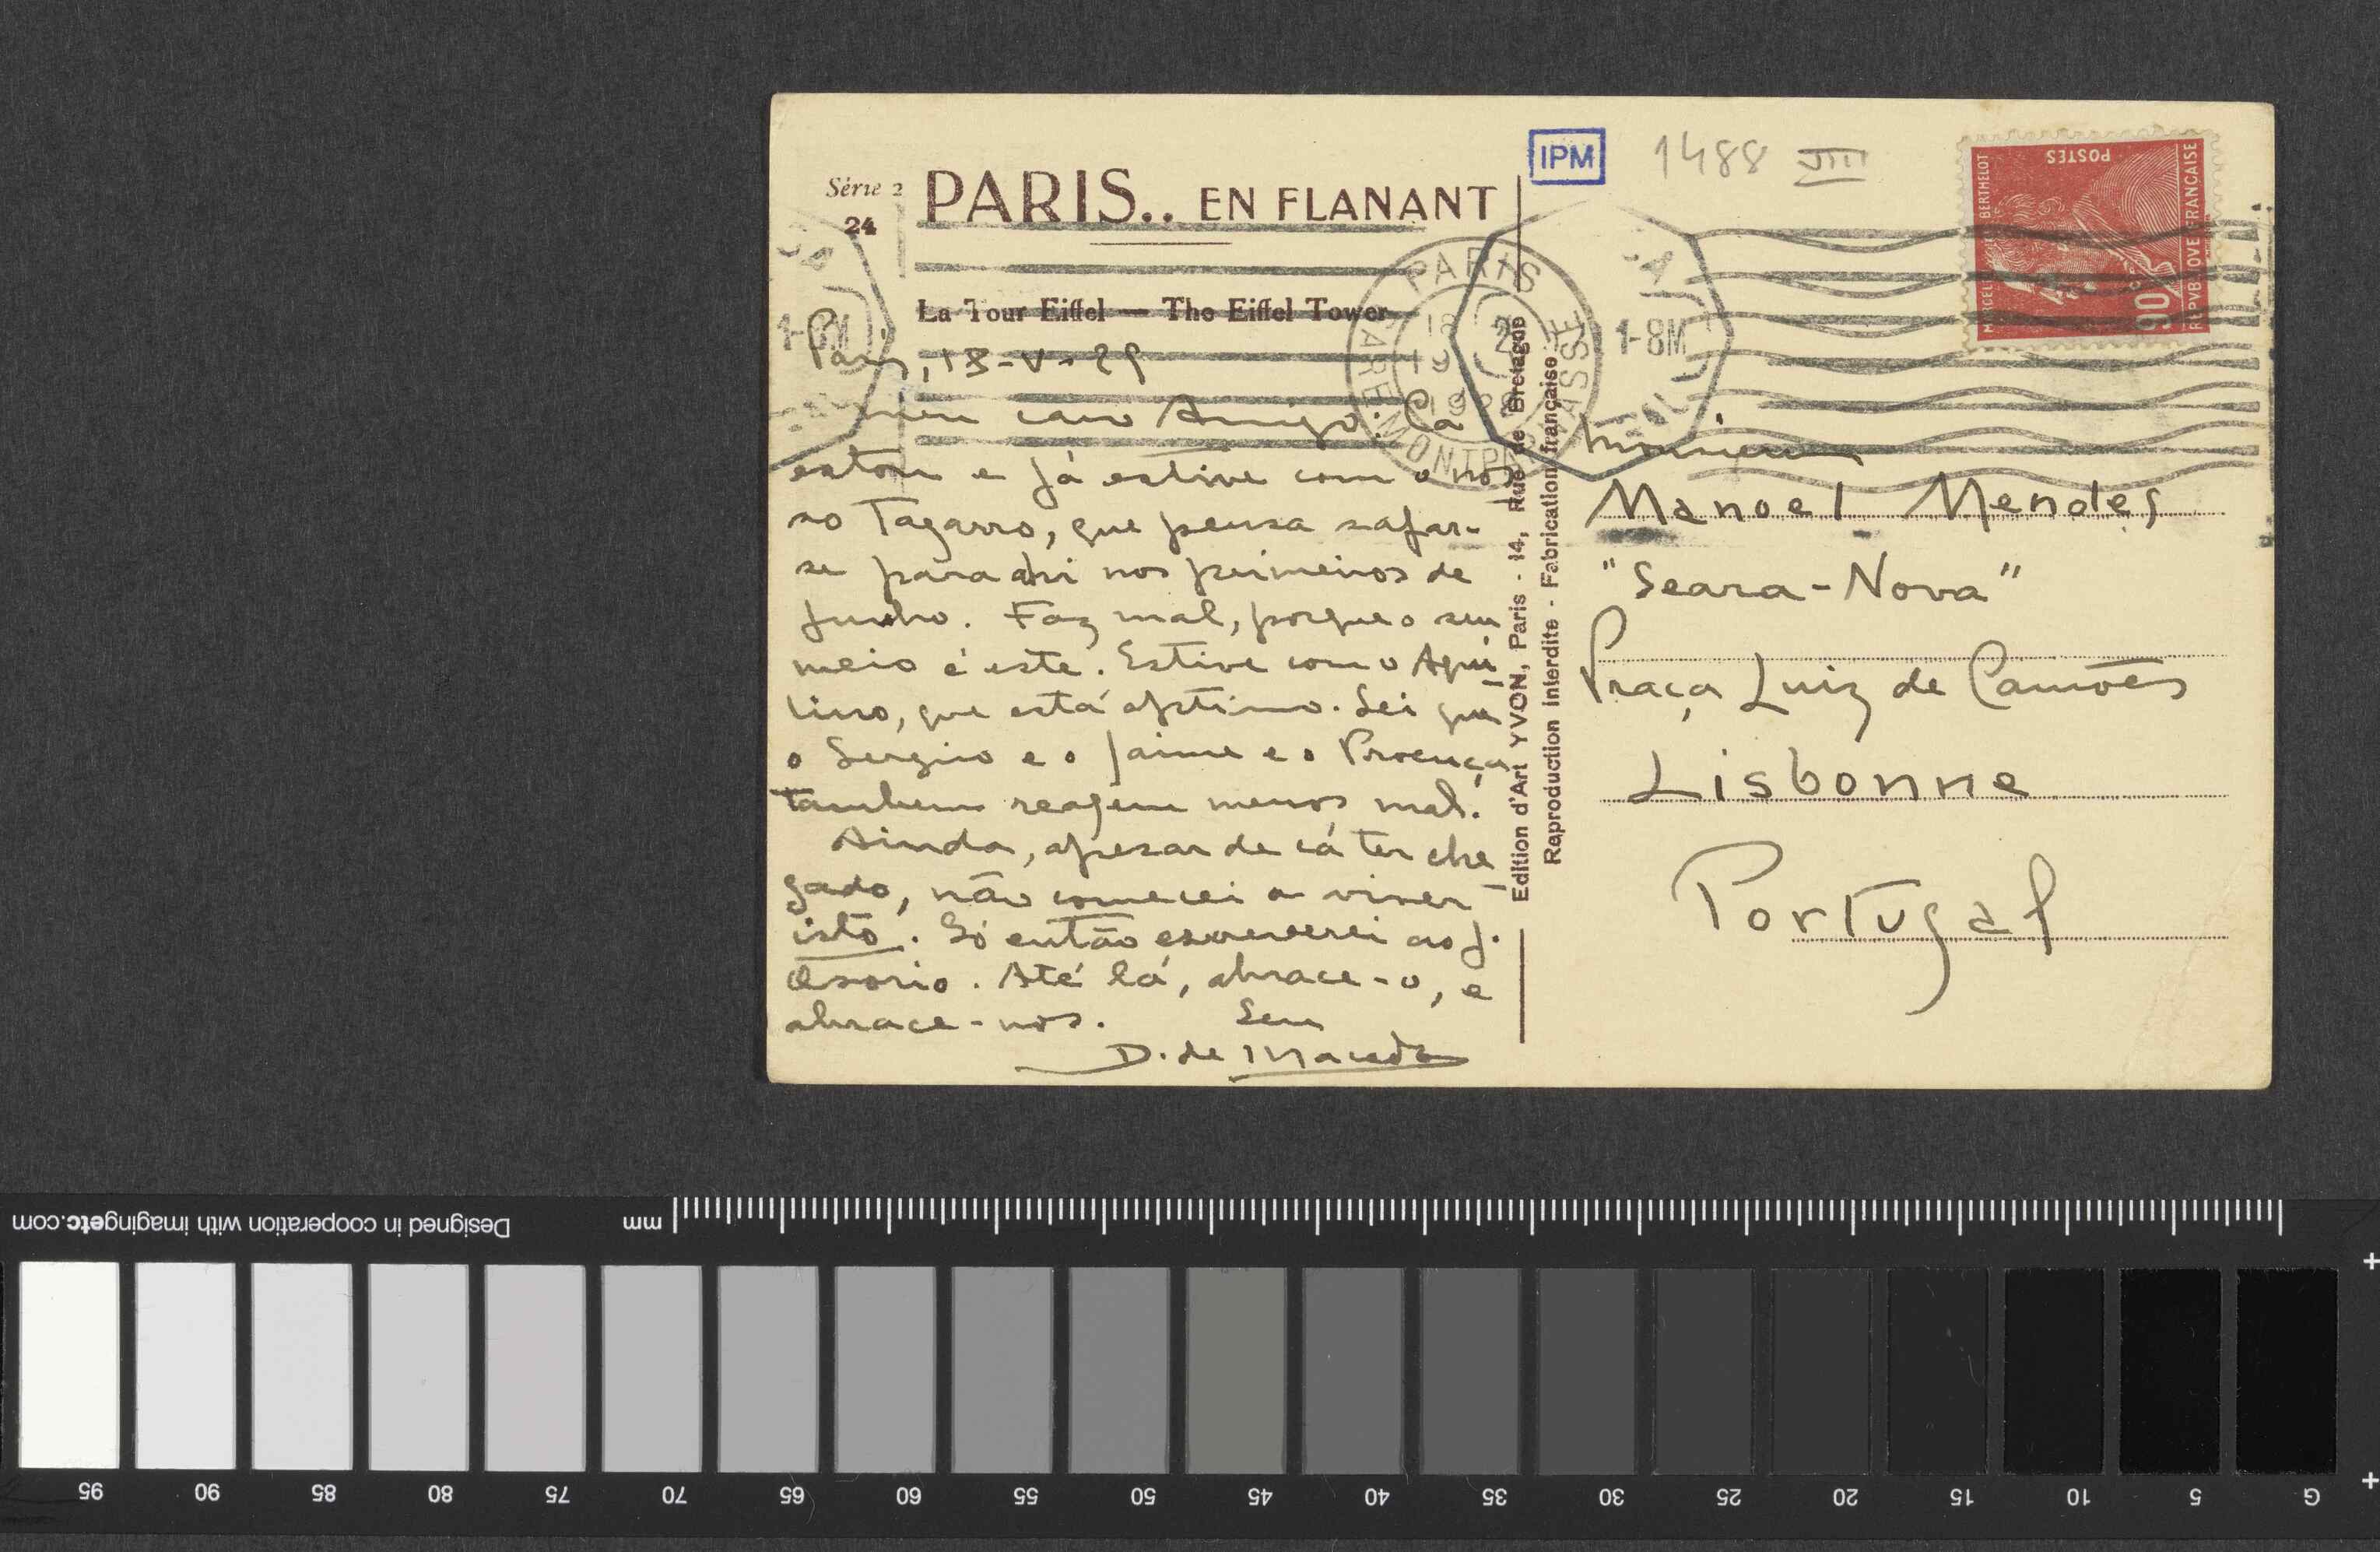 Série 2
24
PARIS.. EN FLANANT
La Tour Eiffel — The Eiffel Tower
Paris, 18-V-29
meu caro Amigo: Cá
estou e já estive com o nos
so Tagarro, que pensa safar-
se para ahi nos primeiros de
Junho. Faz mal, porque o seu
meio é este. Estive com o Aqui
lino, que está optimo. Sei que
o Sergio e o Jaime e o Proença
tambem reagem menos mal.
Ainda, apesar de cá ter che
gado, não comecei a viver
isto. Só então escreverei ao J.
Osorio. Até lá, abrace-o, e
abrace-nos. Seu
D. de Macedo
Edition d'Art YVON, Paris - 14, Rue de Bretagne
Reproduction interdite - Fabrication française
IPM
1488 VIII
POSTES
MARCELIN BERTHELOT
90c
REPVBLIQVE FRANCAISE
PARIS
GARE MONTPARNASSE
1-8M
Monsieur
Manoel Mendes
"Seara-Nova"
Praça Luiz de Camões
Lisbonne
Portugal
Designed in cooperation with imagingetc.com
mm
95 90 85 80 75 70 65 60 55 50 45 40 35 30 25 20 15 10 5 G